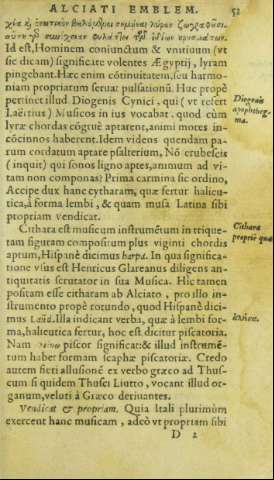 ALCIATI EMBLEM. 52
Id est, Hominem coniunctum & vnitiuum (vt
sic dicam) significate volentes Ægyptij, lyram
pingebant. Hæc enim cõtinuitatem, seu harmo-
niam propriarum seruat pulsationũ. Huc propè
pertinet illud Diogenis Cynici, qui (vt refert
Laërtius) Musicos in ius vocabat. quod cùm
lyræ chordas cõgruè aptarent, animi mores in-
cõcinnos haberent. Idem videns quendam pa-
rum cordatum aptare psalterium, Nõ erubescis
(inquit) qui sonos ligno aptes, animum ad vi-
tam non componas? Prima carmina sic ordino,
Accipe dux hanc cytharam, quæ fertur halieu-
tica, à forma lembi, & quam musa Latina sibi
propriam vendicat.
Cithara est musicum instrumẽtum in trique-
tam figuram compositum plus viginti chordis
aptum, Hispanè dicimus harpa. In qua significa-
tione vsus est Henricus Glareanus diligens an-
tiquitatis scrutator in sua Musica. Hic tamen
positam esse citharam ab Alciato, pro illo in-
strumento propè rotundo, quod Hispanè dici-
mus Laúd. Illa indicant verba, quæ à lembi for-
ma, halieutica fertur, hoc est dicitur piscatoria.
Nam piscor significat: & illud instrumẽ-
tum habet formam scaphæ piscatoriæ. Credo
autem fieri allusionẽ ex verbo græco ad Thus-
cum si quidem Thusci Liutto, vocant illud or-
ganum, veluti à Græco deriuantes.
Vendicat & propriam. Quia Itali plurimùm
exercent hanc musicam, adeò vt propriam sibi
D 2
Diogenis
apophtheg-
ma.
Cithara
propriè quæ